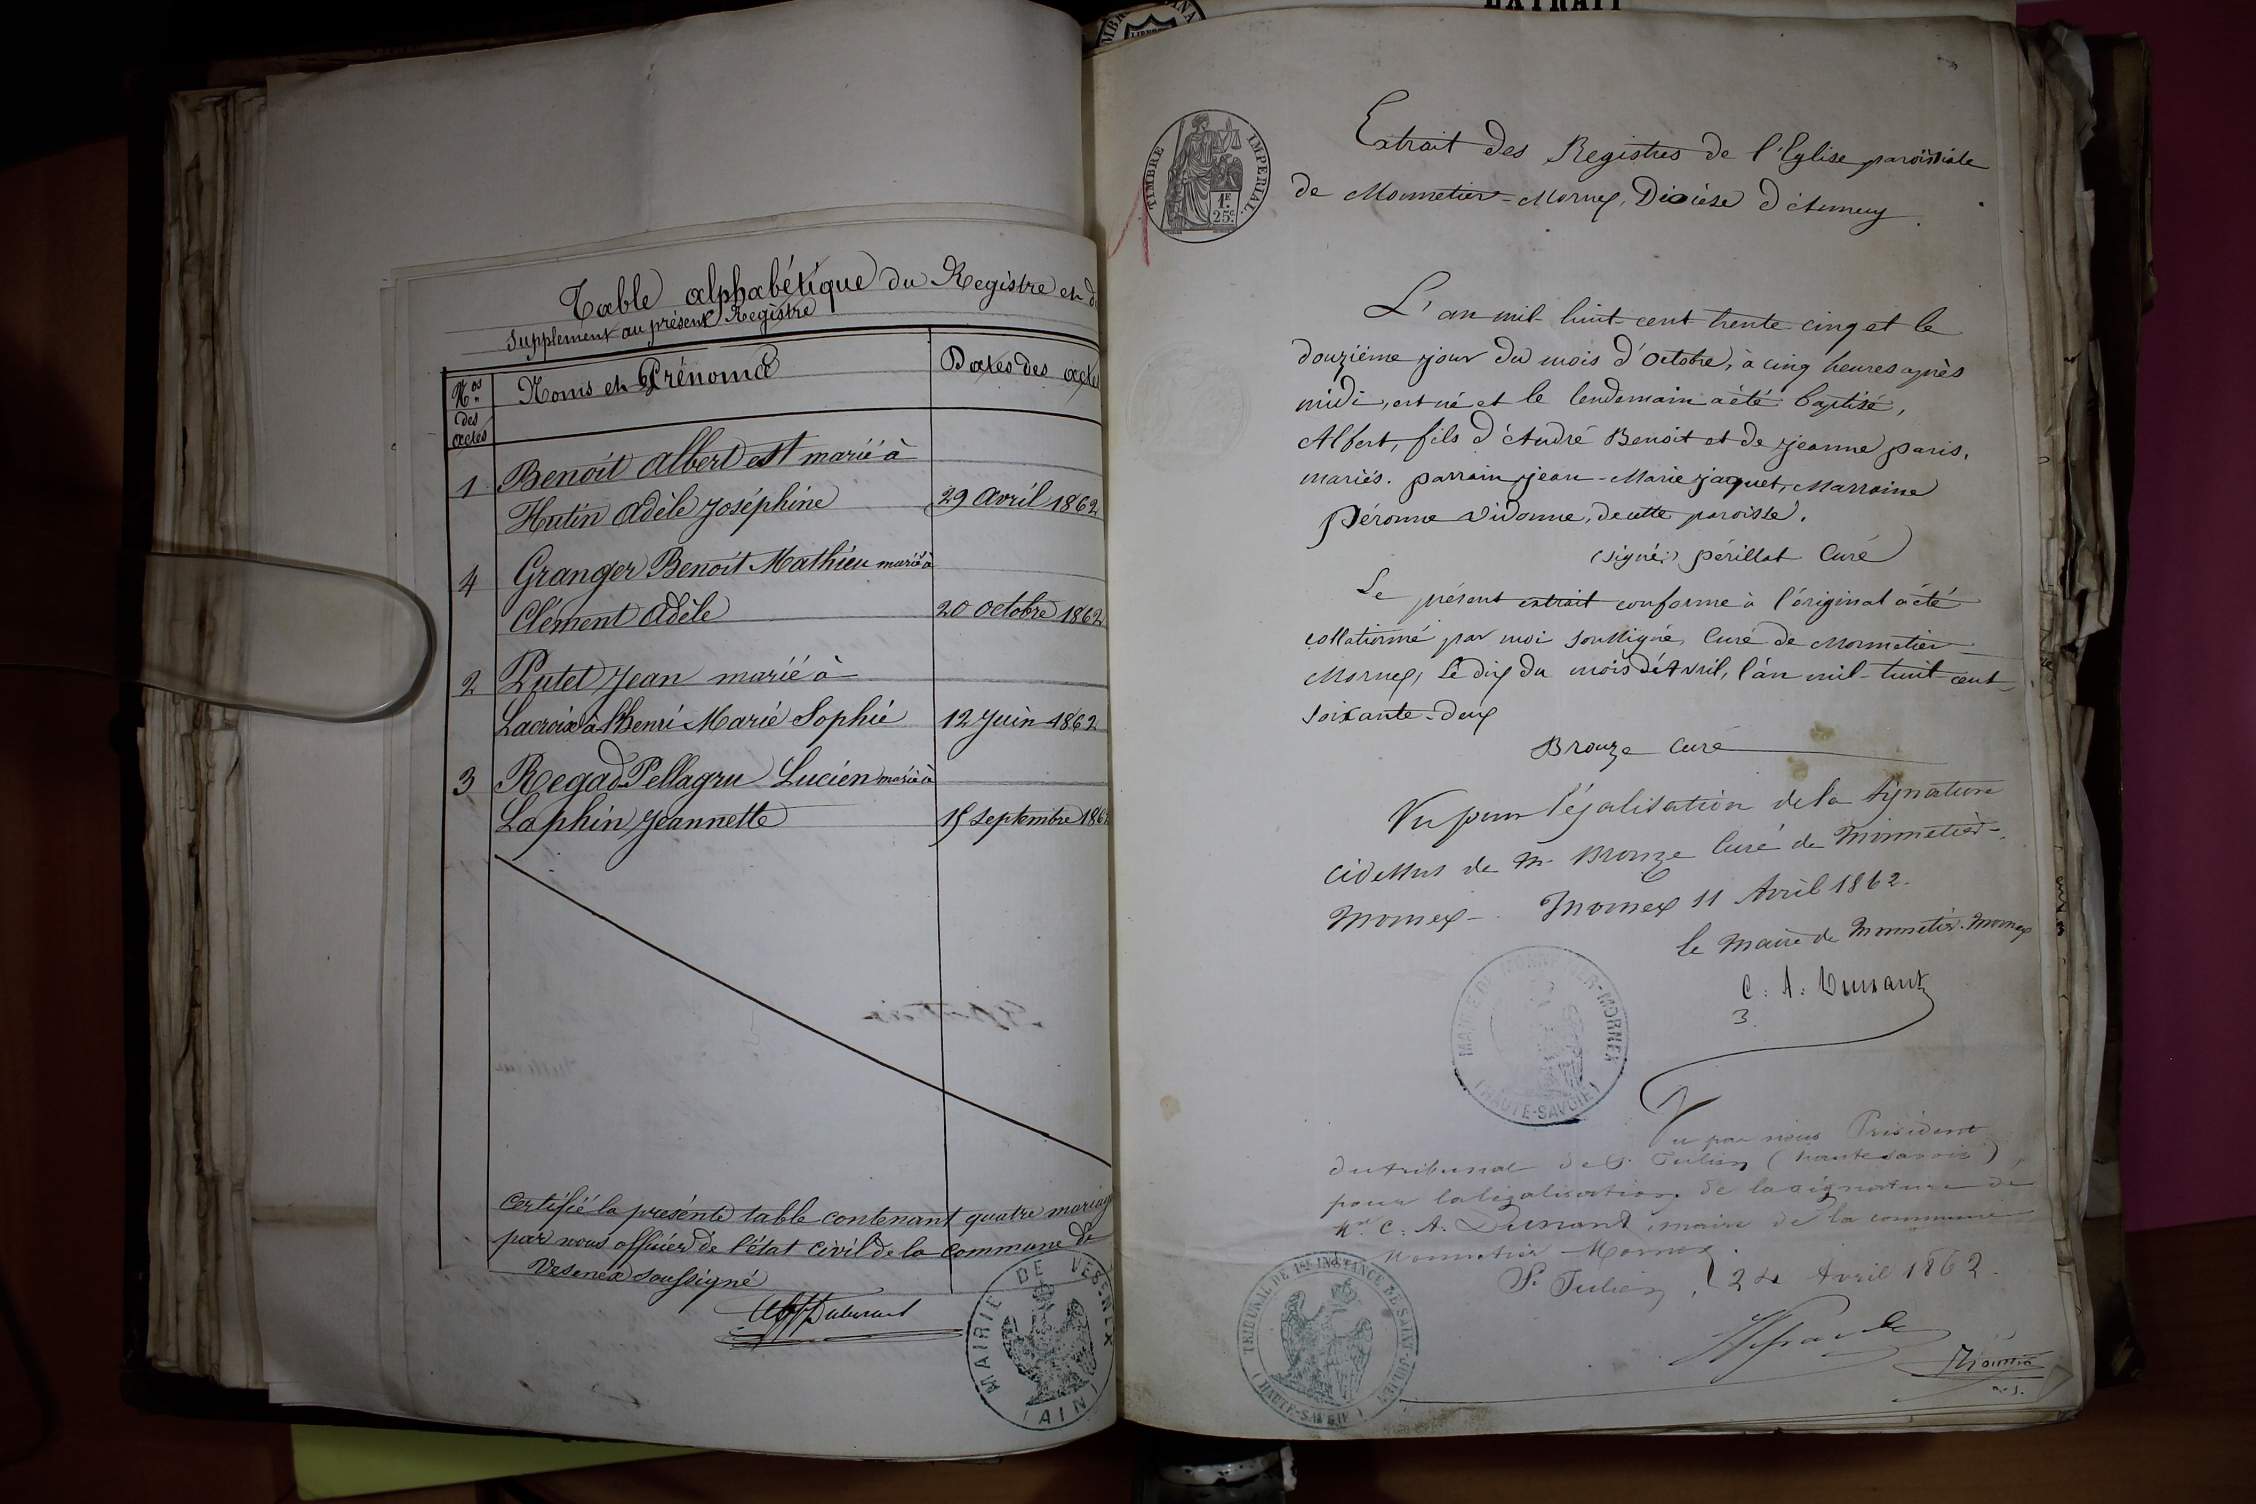 Table alphabétique du Registre et d
Supplement au présent Registre
Nos des actes
Noms et Prénoms
Dates des acte
1 Benoit Albert est marié à
Hutin Adèle Joséphine 29 Avril 1862
4 Granger Benoit Mathieu marié à
Clément Adèle 20 Octobre 1862
2 Putet Jean marié à
Lacroix à l'henri Marie Sophie 12 Juin 1862
3 Regad Pellagru Lucien marié à
Laphin Jeannette 15 Septembre 186
Certifié la présente table contenant quatre mariag
par nous officier de l'état civil de la Commune de
Vesenex soussigné
MAIRIE DE VESENEX
(AIN)
EXTRAIT
TIMBRE IMPERIAL
1F 25c
Extrait des Registres de l'Eglise paroissiale
de Monnetier-Mornex, Diocèse d'Annecy
L'an mil huit cent trente cinq et le
douzième jour du mois d'Octobre, à cinq heures après
midi, est né et le lendemain a été baptisé,
Albert, fils d'André Benoit et de jeanne paris,
mariés. parrain jean-Marie jaquet, Marraine
péronne Vidonne, de cette paroisse.
(signé:) périllat Curé
Le présent extrait conforme à l'original a été
collationné par moi soussigné, Curé de Monnetier-
Mornex, Le dix du mois d'Avril, l'an mil-huit cent
soixante-deux
Bronze Curé
Vu pour légalisation de la Signature
cidessus de Mr Bronze Curé de Monnetier-
Mornex - Mornex 11 Avril 1862.
le Maire de Monnetier-Mornex
C. A. Dunant
MAIRIE DE MONNETIER-MORNEX
(HAUTE-SAVOIE)
Vu par nous Président
du tribunal de St Julien (haute savoie),
pour la légalisation de la signature de
Mr C. A. Dunant, maire de la commune
Monnetier-Mornex.
St Julien, 24 Avril 1862.
TRIBUNAL DE 1re INSTANCE DE SAINT-JULIEN
(HAUTE-SAVOIE)